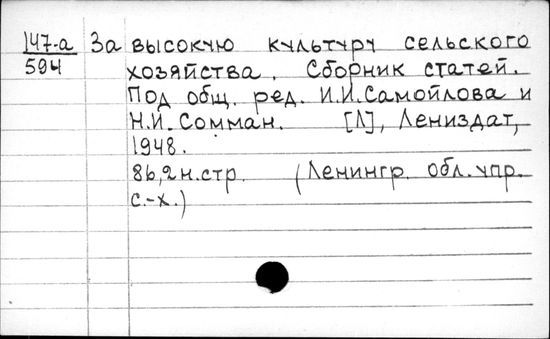 147-а За высокую культуру сельского
594 хозяйства. Сборник статей.
Под общ. ред. И.И.Самойлова и
Н.И.Сомман. [Л], Лениздат,
1948.
86,2н.стр. (Ленингр. обл.упр.
с.-х.)